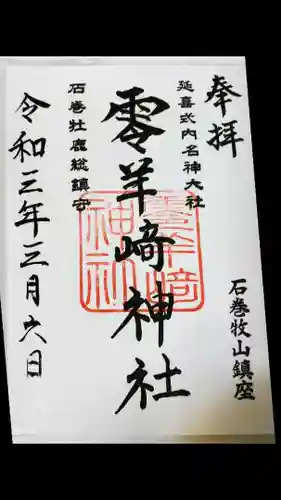 奉拝
延喜式内名神大社
石巻牧山鎮座
零羊崎神社
石巻牡鹿総鎮守
令和三年三月六日
零羊崎神社